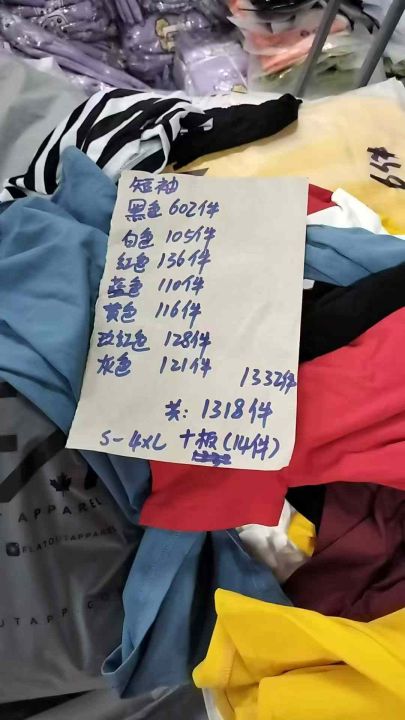 短袖
黑色 602件
白色 105件
红色 136件
蓝色 110件
黄色 116件
玫红色 128件
灰色 121件
1332件
共: 1318件
S-4XL 十板(14件)
6件
APPAREL
FLATOUTAPPAREL
UTAPP.CO